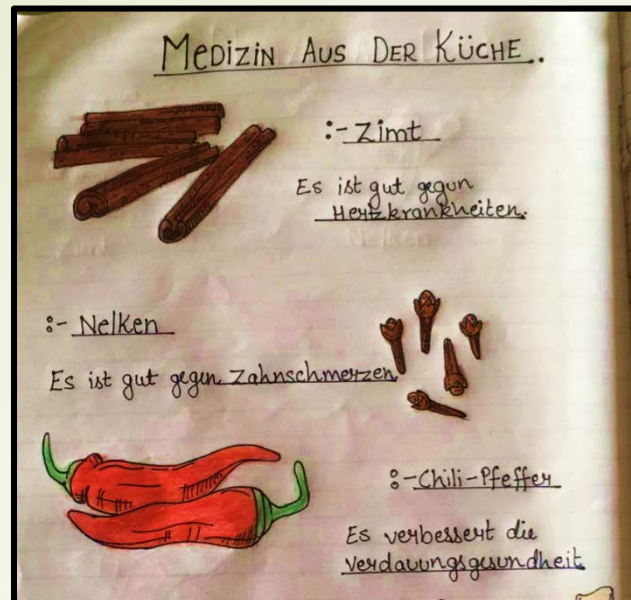 MEDIZIN AUS DER KÜCHE..
:- Zimt
Es ist gut gegen
Hertzkrankheiten.
:- Nelken
Es ist gut gegen Zahnschmerzen
:- Chili-Pfeffer
Es verbessert die
verdauungsgesundheit